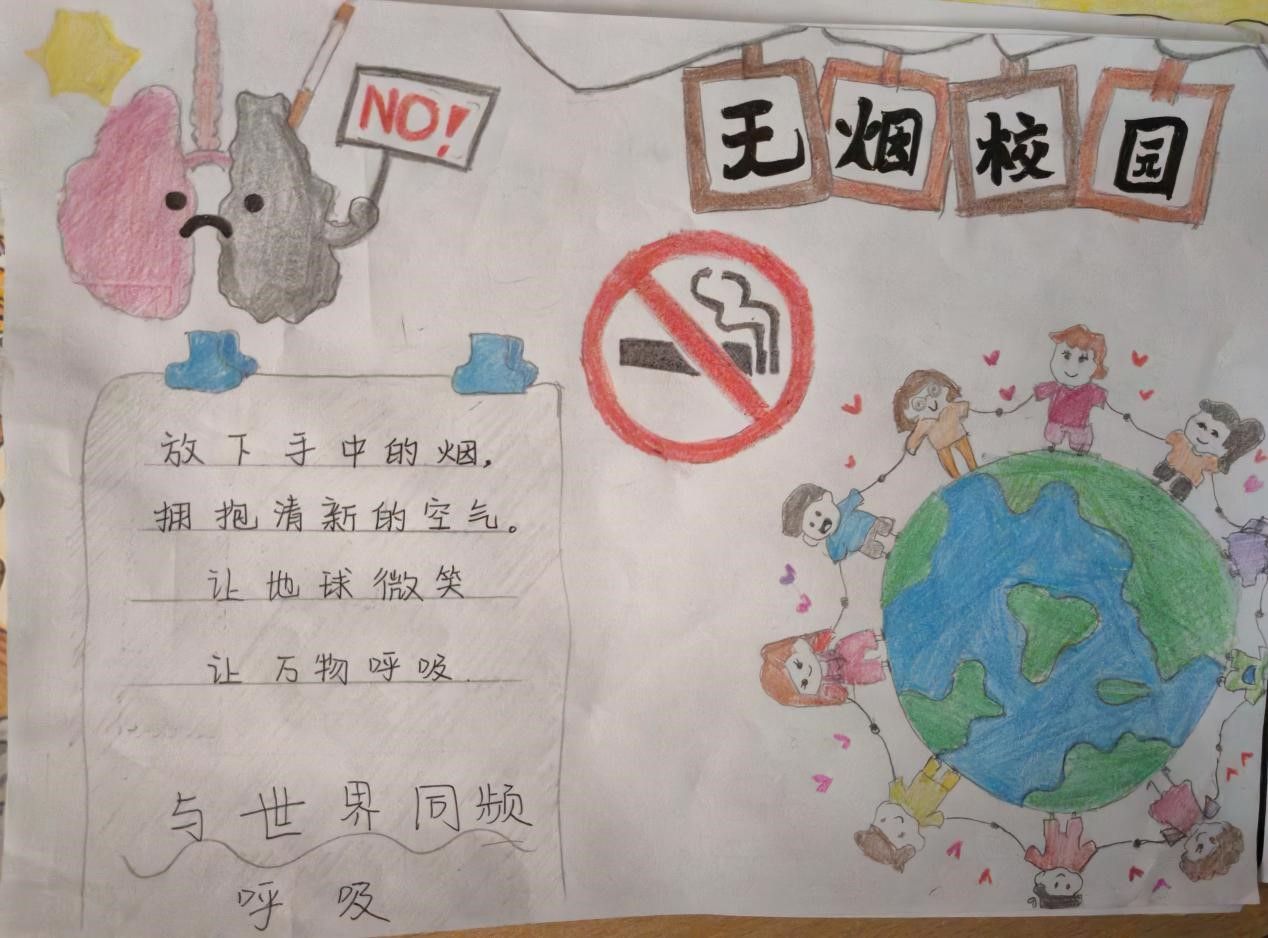 NO!
无烟校园
放下手中的烟,
拥抱清新的空气。
让地球微笑
让万物呼吸.
与世界同频
呼吸